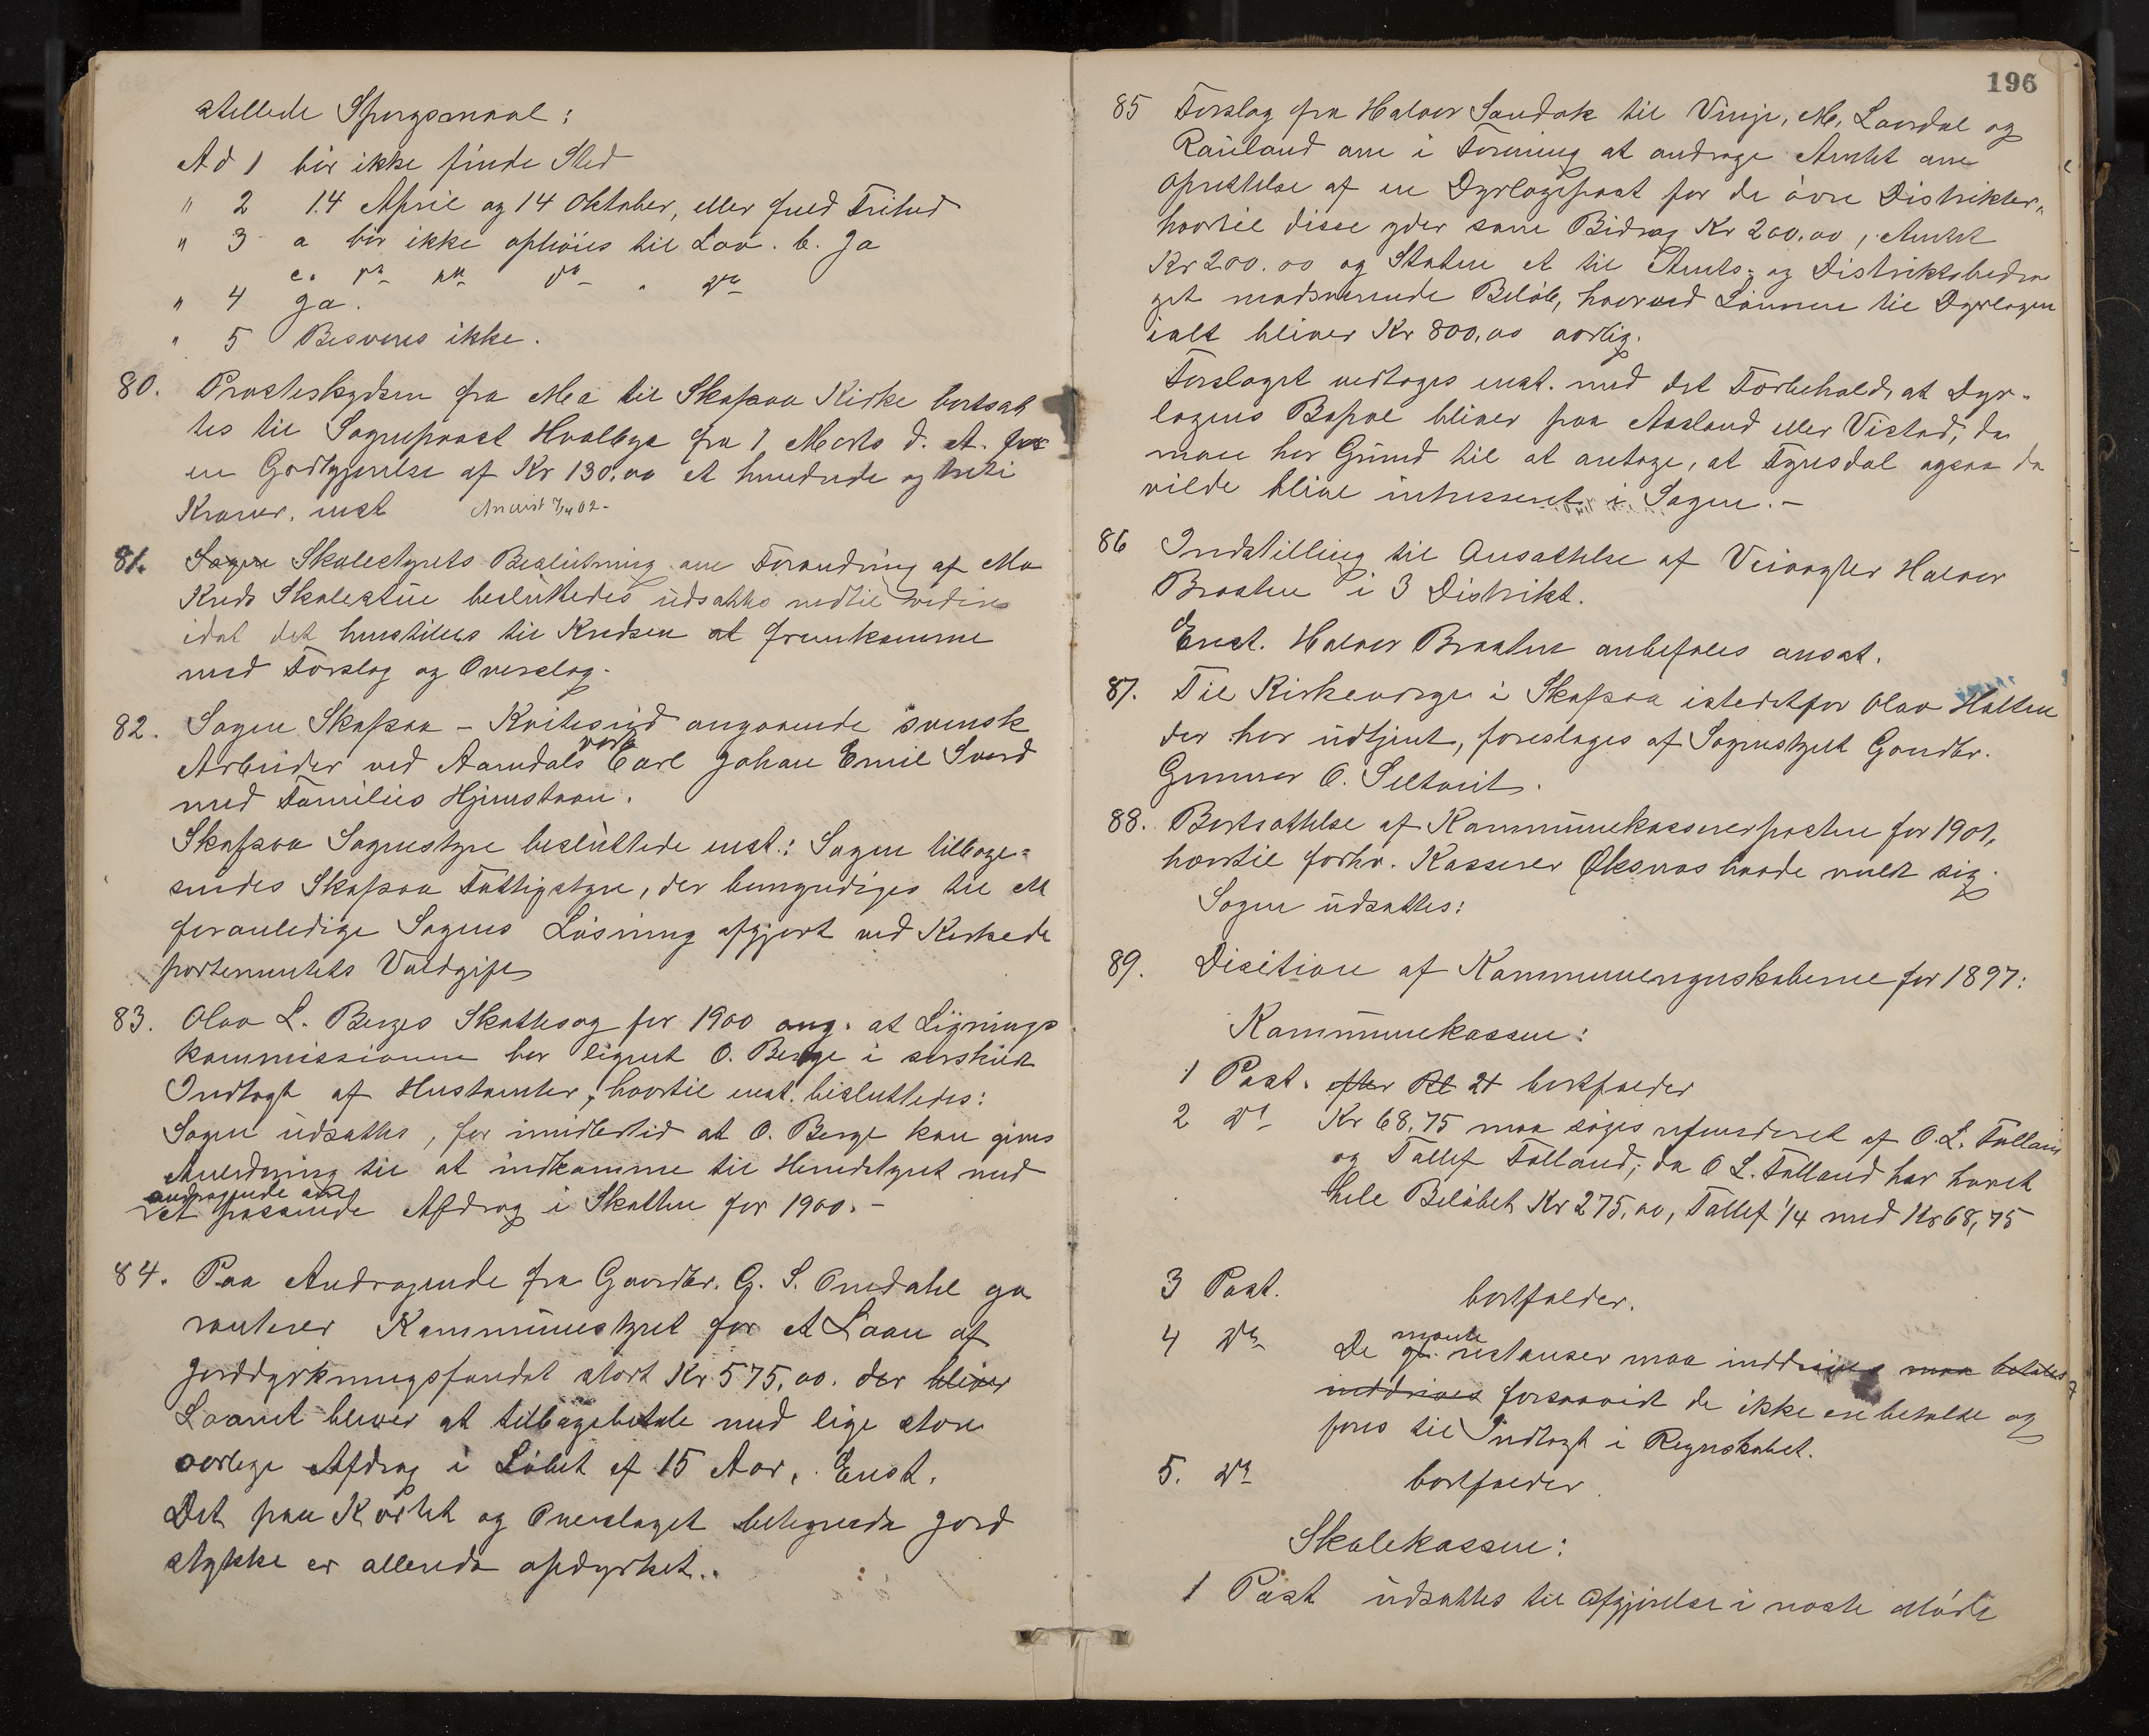 stellede Spørgsmaal:
Ad 1 bør ikke finde Sted
" 2 14 April og 14 Oktober, eller fuld Frihed
" 3 a bør ikke ophøies til Lov. b. Ja
c. do do do
" 4 Ja.
" 5 Besvares ikke.
80. Presteskydsen fra Mo til Skafsaa Kirke bortsat
tes til Sogneprest Hvalbye fra 1 Marts d. A. for
en Godtgjørelse af Kr 130,00 et hundrede og treti
Kroner. enst
81. Sagen Skolestyrets Beslutning om Forandring af Mo
Kreds Skolestue besluttedes udsattes indtil videre
idet det henstilles til Kredsen at fremkomme
med Forslag og Overslag.
82. Sagen Skafsaa - Kviteseid angaaende svensk
Arbeider ved Aamdals verk Carl Johan Emil Sverd
med Families Hjemstavn.
Skafsaa Sognestyre besluttede enst.: Sagen tilbage=
sendes Skafsaa Fattigstyre, der bemyndiges til at
foranledige Sagens Løsning afgjort ved Kirkede
partementets Voldgift
83. Olav L. Berges Skattesag for 1900 ang. at Lignings
kommissionen har lignet O. Berge i særskilt
Indtægt af Hustomter, hvortil enst. besluttedes:
Sagen udsattes, for imidlertid at O. Berge kan gives
Anledning til at indkomme til Herredstyret med
andragende om
et passende Afdrag i Skatten for 1900. -
84. Paa Andragende fra Gaardbr. G. S. Omdahl ga
ranterer Kommunestyret for et Laan af
Jorddyrkningsfondet stort Kr 575,00. der bliver
Laanet bliver at tilbagebetale med lige store
aarlige Afdrag i Løbet af 15 Aar. Enst.
Det paa Kortet og Overslaget betegnede Jord
stykke er allerede opdyrket.
196
85 Forslag fra Halvor Sandok til Vinje, M, Laardal og
Rauland om i Forening at andrage Amtet om
Oprettelse af en Dyrlægepost for de øvre Distrikter,
hvortil disse yder som Bidrag Kr 200,00, Amtet
Kr 200.00 og Staten et til Amts- og Distriktsbidra
get modsvarende Beløb, hvorved Lønnen til Dyrlægen
ialt bliver Kr 800,00 aarlig.
Forslaget vedtoges enst. med det Forbehold, at Dyr-
lægens Bopæl bliver paa Aasland eller Vistad, da
man har Grund til at antage, at Fyresdal ogsaa da
vilde blive intresseret i Sagen. -
86 Indstilling til Ansættelse af Veivogter Halvor
Braaten i 3 Distrikt.
Enst. Halvor Braaten anbefales ansat.
87. Til Kirkeværge i Skafsaa istedetfor Olav Holten
der har udtjent, foreslages af Sognestyret Gaardbr.
Gunnar O. Seltveit.
88. Bortsættelse af Kommunekassererposten for 1901,
hvortil forhv. Kasserer Øksnes havde meldt sig.
Sagen udsattes:
89. Dicition af Kommuneregnskaberne for 1897:
Kommunekassen:
1 Post. efter Rd 21 bortfalder
2 do Kr 68,75 maa søges refunderet af O. L. Folland
og Tallef Folland, da O L. Folland har hævet
hele Beløbet Kr 275,00, Tallef 1/4 med Kr 68,75
3 Post. bortfalder.
4 do De maate
gl. restanser maa inddrives maa betales
inddrives forsaavidt de ikke ere betalte og
føres til Indtægt i Regnskabet.
5. do bortfalder.
Skolekassen:
1 Post udsattes til Afgjørelse i næste Møde